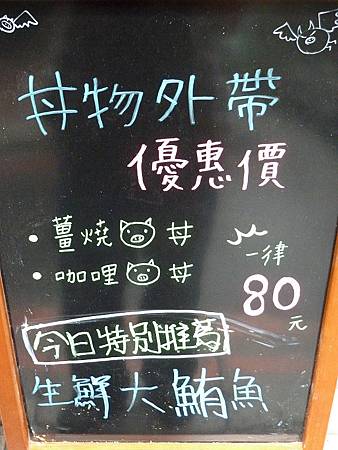 丼物外帶
優惠價
・薑燒丼
・咖哩丼
一律
80元
今日特別推薦
生鮮大鮪魚